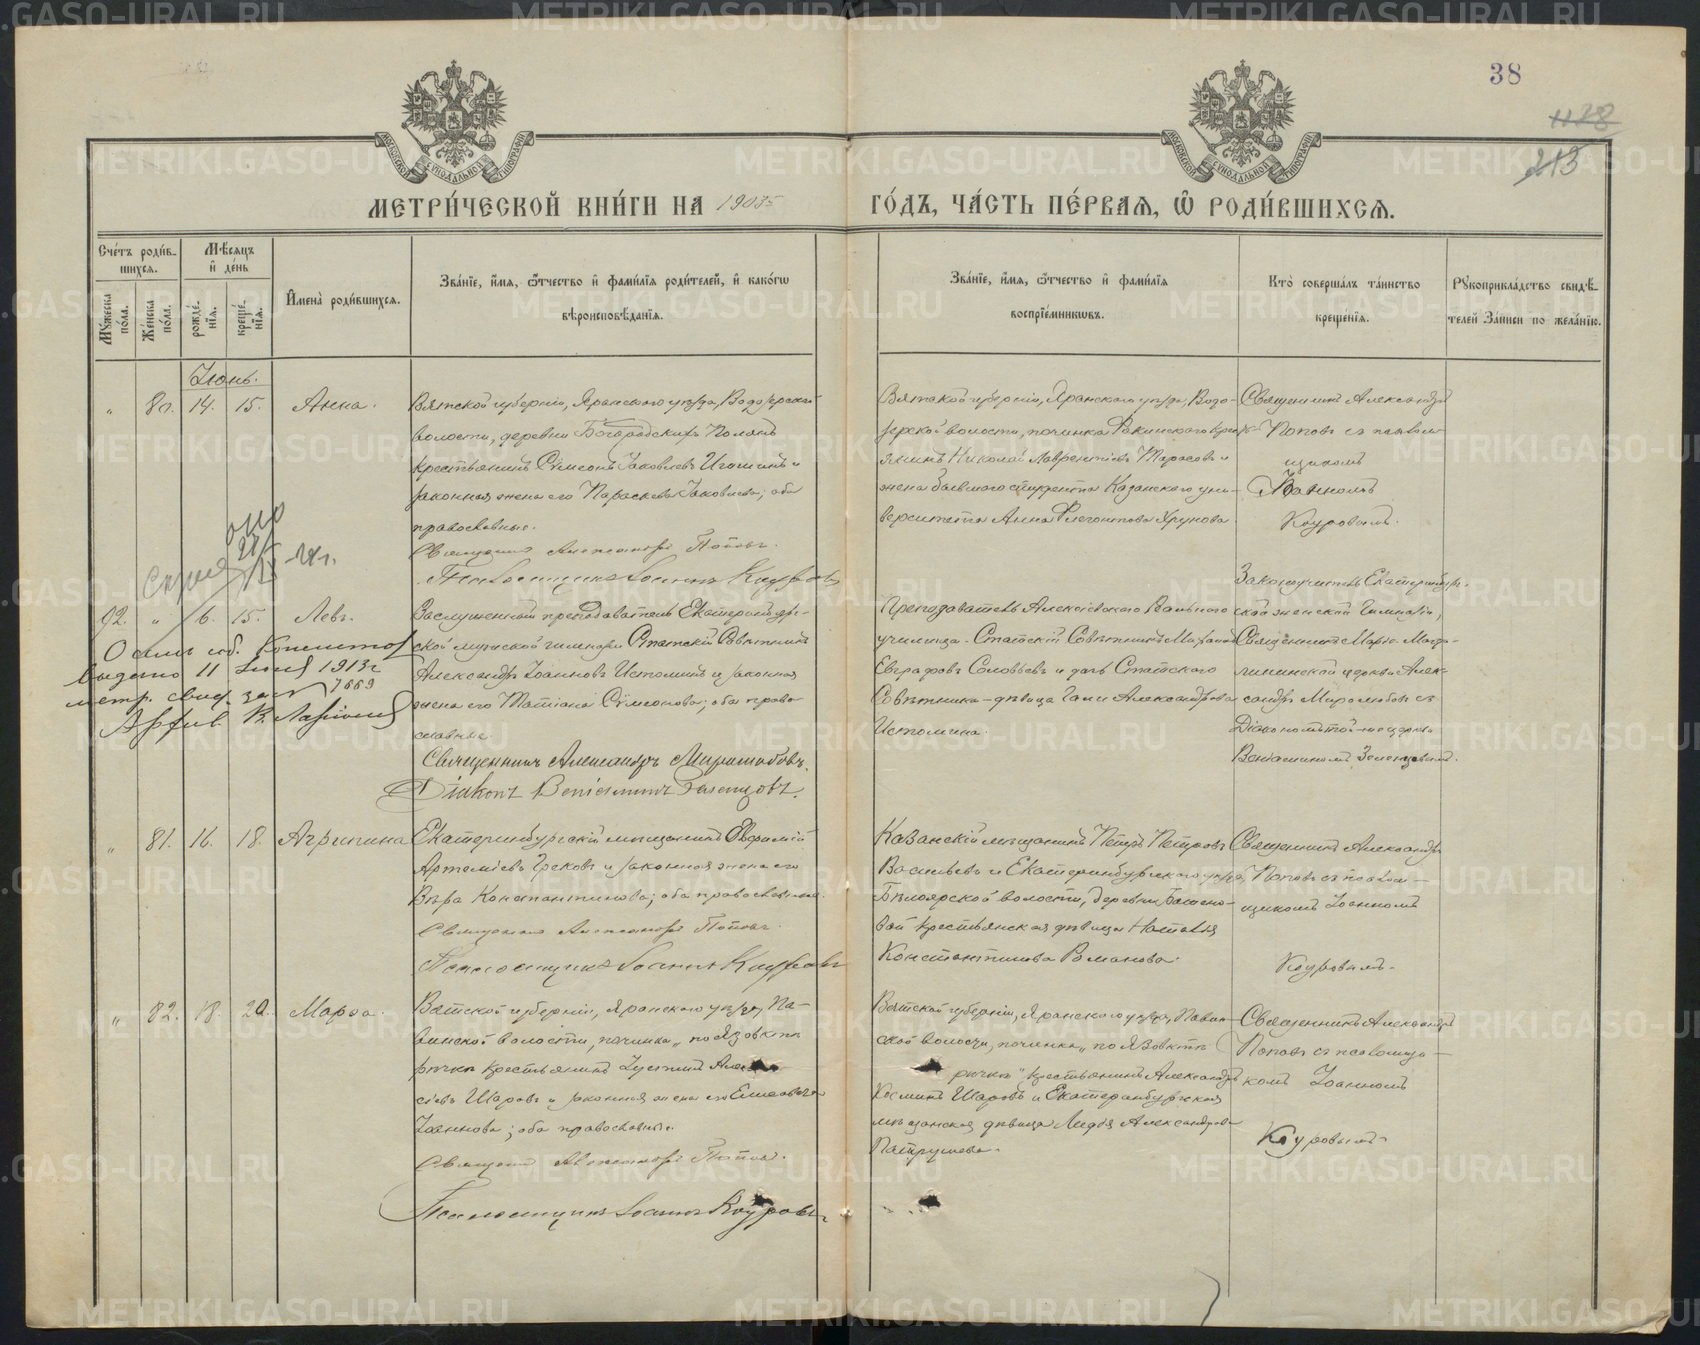 38
1128
213
МОСКОВСКОЙ СѴНОДАЛЬНОЙ ТИПОГРАФІИ
МОСКОВСКОЙ СѴНОДАЛЬНОЙ ТИПОГРАФІИ
МЕТРИ́ЧЕСКОЙ КНИ́ГИ НА 1905 ГО́ДЪ, ЧА́СТЬ ПЕ́РВАѦ, Ѽ РОДИ́ВШИХСѦ.
Сче́тъ роди́вшихсѧ.
Мѣ́сѧцъ и҆ де́нь
Мꙋ́жеска по́ла.
Же́нска по́ла.
рожде́нїѧ.
креще́нїѧ.
И҆мена̀ роди́вшихсѧ.
Зва́нїе, и҆́мѧ, ѻ҆́тчество и҆ фами́лїѧ роди́телей, и҆ како́гѡ
вѣроисповѣ́данїѧ.
Зва́нїе, и҆́мѧ, ѻ҆́тчество и҆ фами́лїѧ
воспрїе́мникѡвъ.
Кто̀ соверша́лъ та́инство
креще́нїѧ.
Рꙋкоприкла́дство свидѣ́-
телей за́писи по жела́нїю.
Іюнь.
" 80. 14. 15. Анна.
Вятской губерніи, Яранскаго уѣзда, Водозерской
волости, деревни Богородскихъ Полянъ
крестьянинъ Сѵмеонъ Іаковлевъ Игошинъ и
законная жена его Параскева Іаковлева; оба
православные.
Священникъ Александръ Поповъ.
Псаломщикъ Іоаннъ Коуровъ
Вятской губерніи, Яранскаго уѣзда, Водо-
зерской волости, починка
Николай Лаврентіевъ Тарасовъ и
жена бывшаго студента Казанскаго уни-
верситета Анна Флегонтова Хрунова.
Священникъ Александръ
Поповъ съ псалом-
щикомъ
Іоанномъ
Коуровымъ.
92. " 6. 15. Левъ.
Заслуженный преподаватель Екатеринбург-
ской мужской гимназіи Статскій Совѣтникъ
Александръ Іоанновъ Истоминъ и законная
жена его Татіана Сѵмеонова; оба право-
славные.
Священникъ Александръ Миролюбовъ.
Діаконъ Веніаминъ Зеленцовъ.
Преподаватель Алексѣевскаго Реальнаго
училища Статскій Совѣтникъ
Евграфовъ Соловьевъ и дочь Статскаго
Совѣтника дѣвица Александрова
Истомина.
Законоучитель Екатеринбург-
ской женской Гимназіи,
Священникъ Марiе-Магда-
лининской церкви Алек-
сандръ Миролюбовъ съ
Діакономъ той-же церкви
Веніаминомъ Зеленцовымъ.
выдано 11 Іюня 1913 г
метр. свид. за № 7669
" 81. 16. 18. Агрипина
Екатеринбургскій мѣщанинъ Евфимій
Артеміевъ Грековъ и законная жена его
Вѣра Константинова; оба православные.
Священникъ Александръ Поповъ.
Псаломщикъ Іоаннъ Коуровъ
Казанскій мѣщанинъ Петръ Петровъ
Васильевъ и Екатеринбургскаго уѣзда,
Бѣлоярской волости, деревни
крестьянская дѣвица Наталія
Константинова Романова.
Священникъ Александръ
Поповъ съ псалом-
щикомъ Іоанномъ
Коуровымъ.
" 82. 18. 20. Марѳа.
Вятской губерніи, Яранскаго уѣзда, Па-
винской волости, починка „по Язовкѣ
рѣчкѣ крестьянинъ Алек
сѣевъ Шаровъ и законная жена его Елисавета
Іоаннова; оба православные.
Священникъ Александръ Поповъ.
Псаломщикъ Іоаннъ Коуровъ.
Вятской губерніи, Яранскаго уѣзда, Павин-
ской волости, починка „по Язовкѣ
рѣчкѣ" крестьянинъ Александръ
Косминъ Шаровъ и Екатеринбургская
мѣщанская дѣвица Лидія Александрова
Патрушева.
Священникъ Александръ
Поповъ съ псаломщи-
комъ Іоанномъ
Коуровымъ.
METRIKI.GASO-URAL.RU